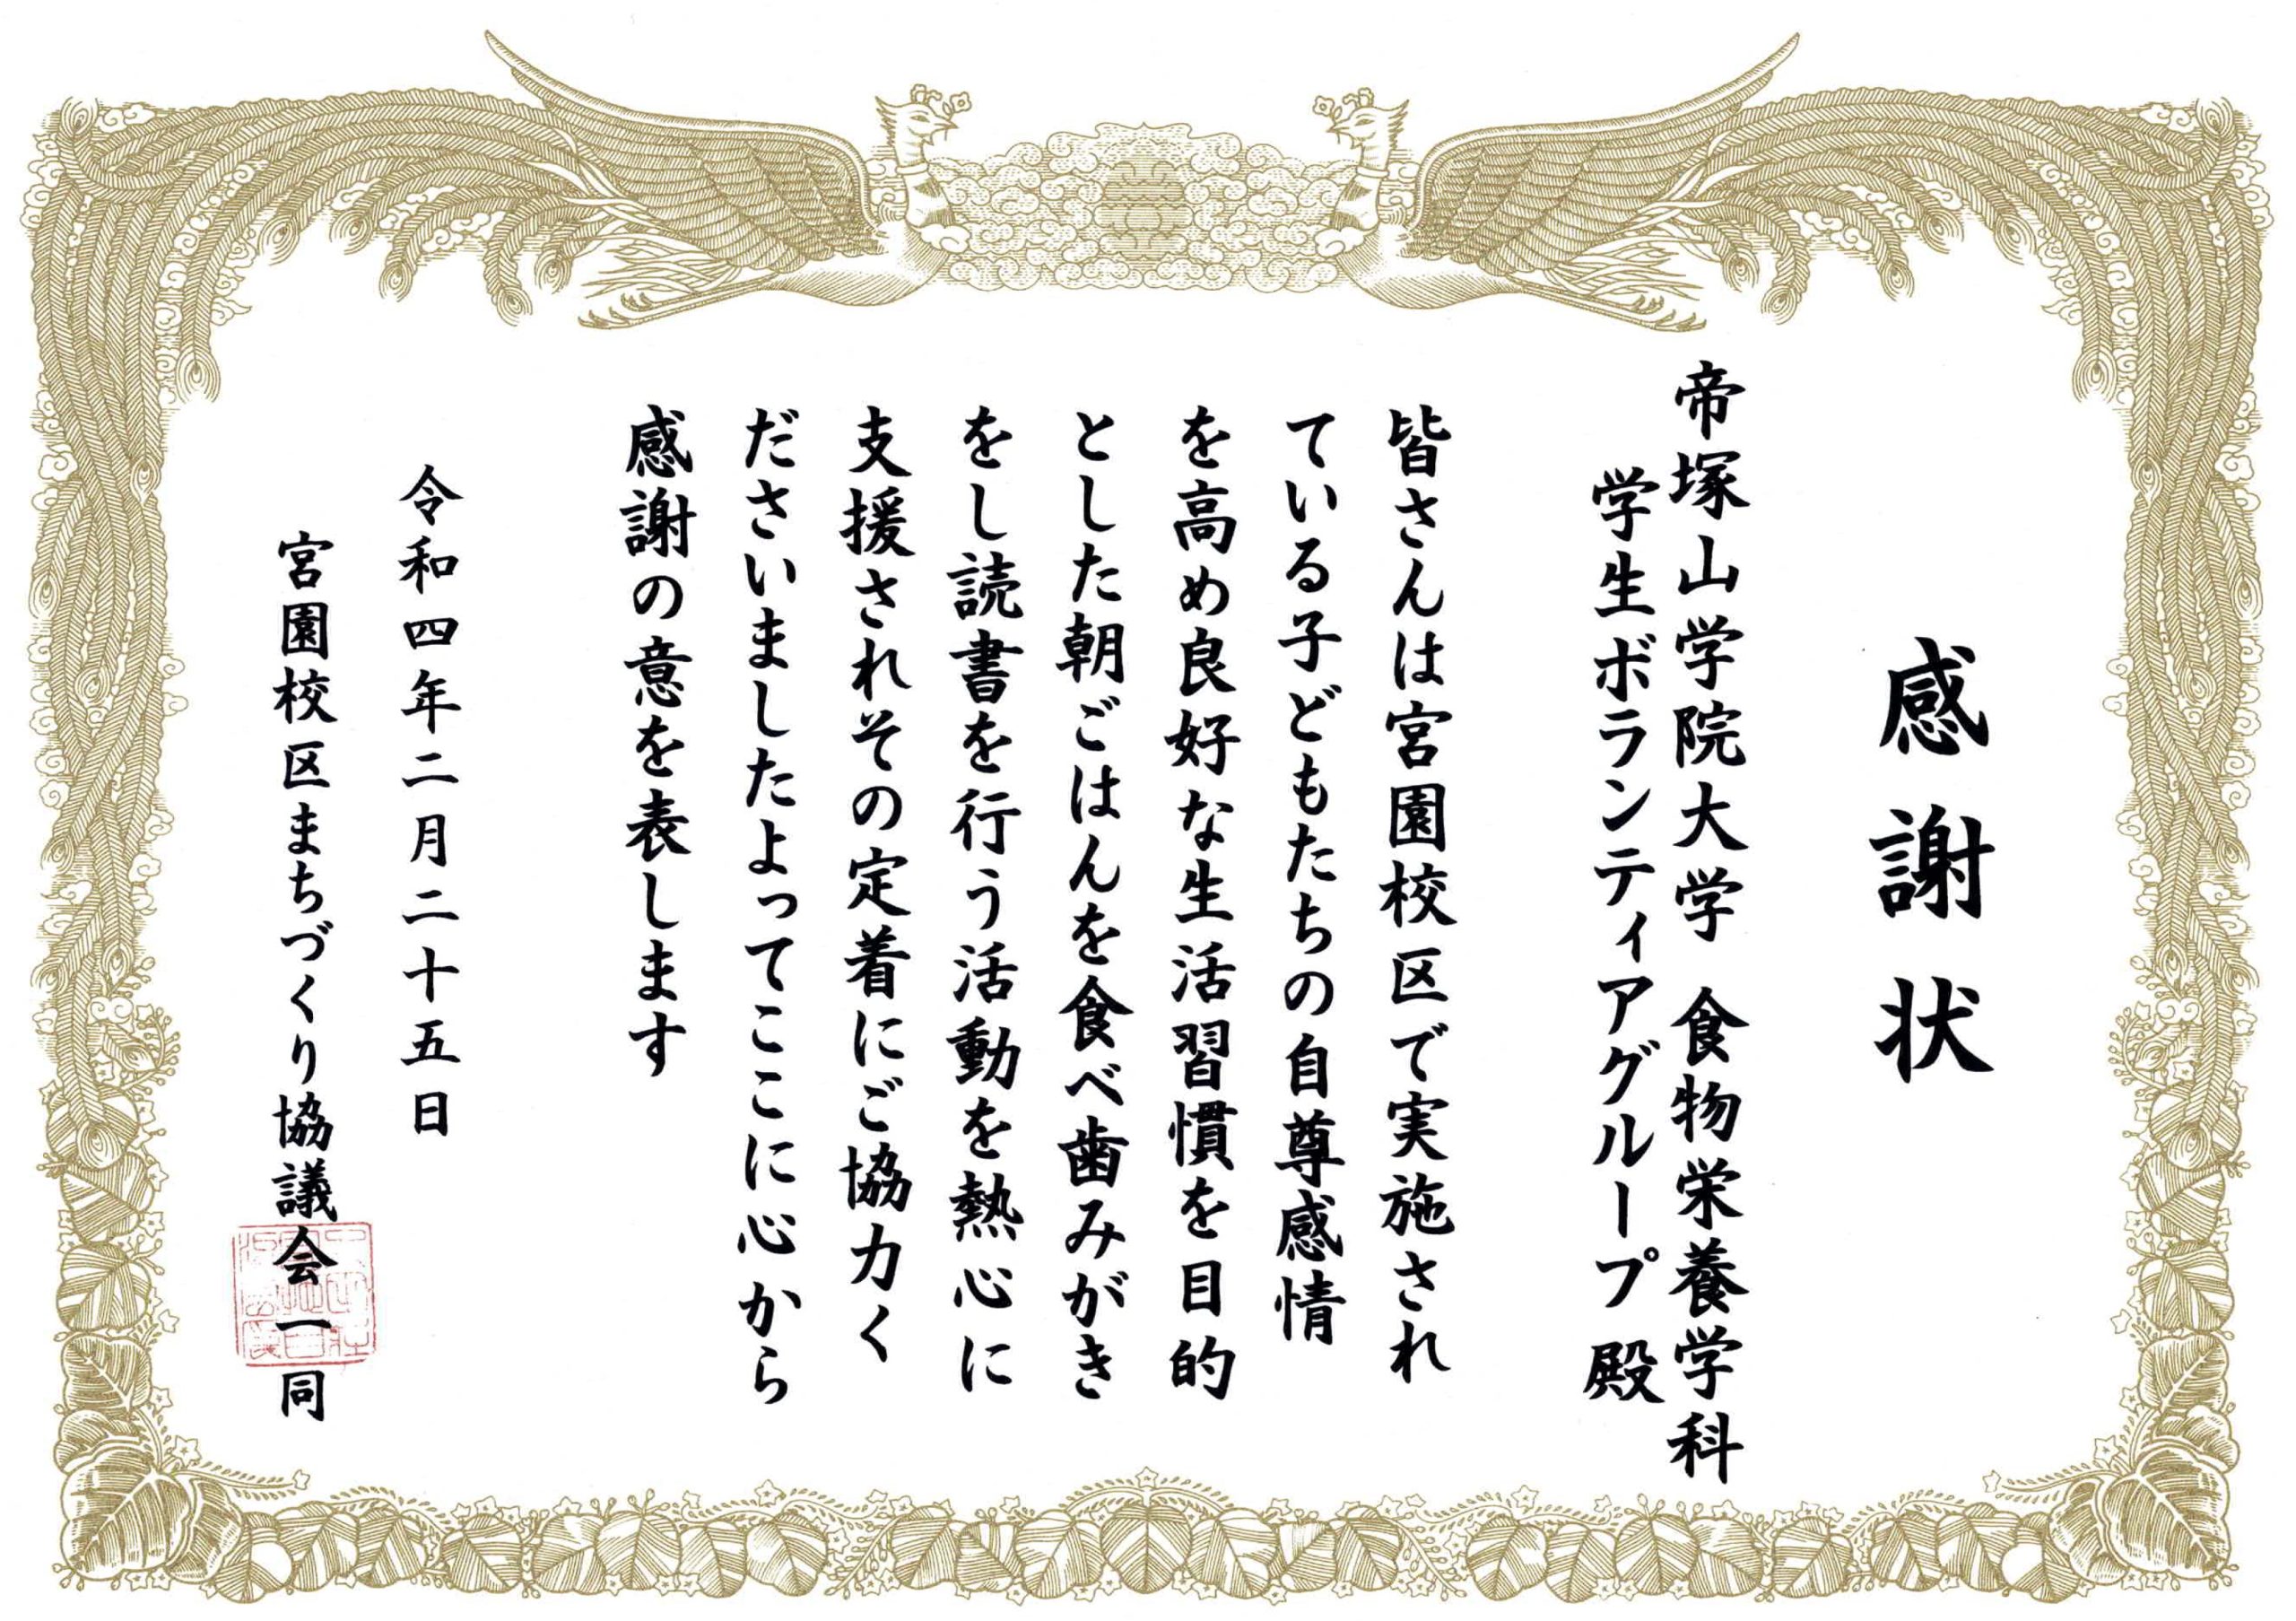 感謝状
帝塚山学院大学 食物栄養学科
学生ボランティアグループ 殿
皆さんは宮園校区で実施され
ている子どもたちの自尊感情
を高め良好な生活習慣を目的
とした朝ごはんを食べ歯みがき
をし読書を行う活動を熱心に
支援されその定着にご協力く
ださいましたよってここに心から
感謝の意を表します
令和四年二月二十五日
宮園校区まちづくり協議会一同